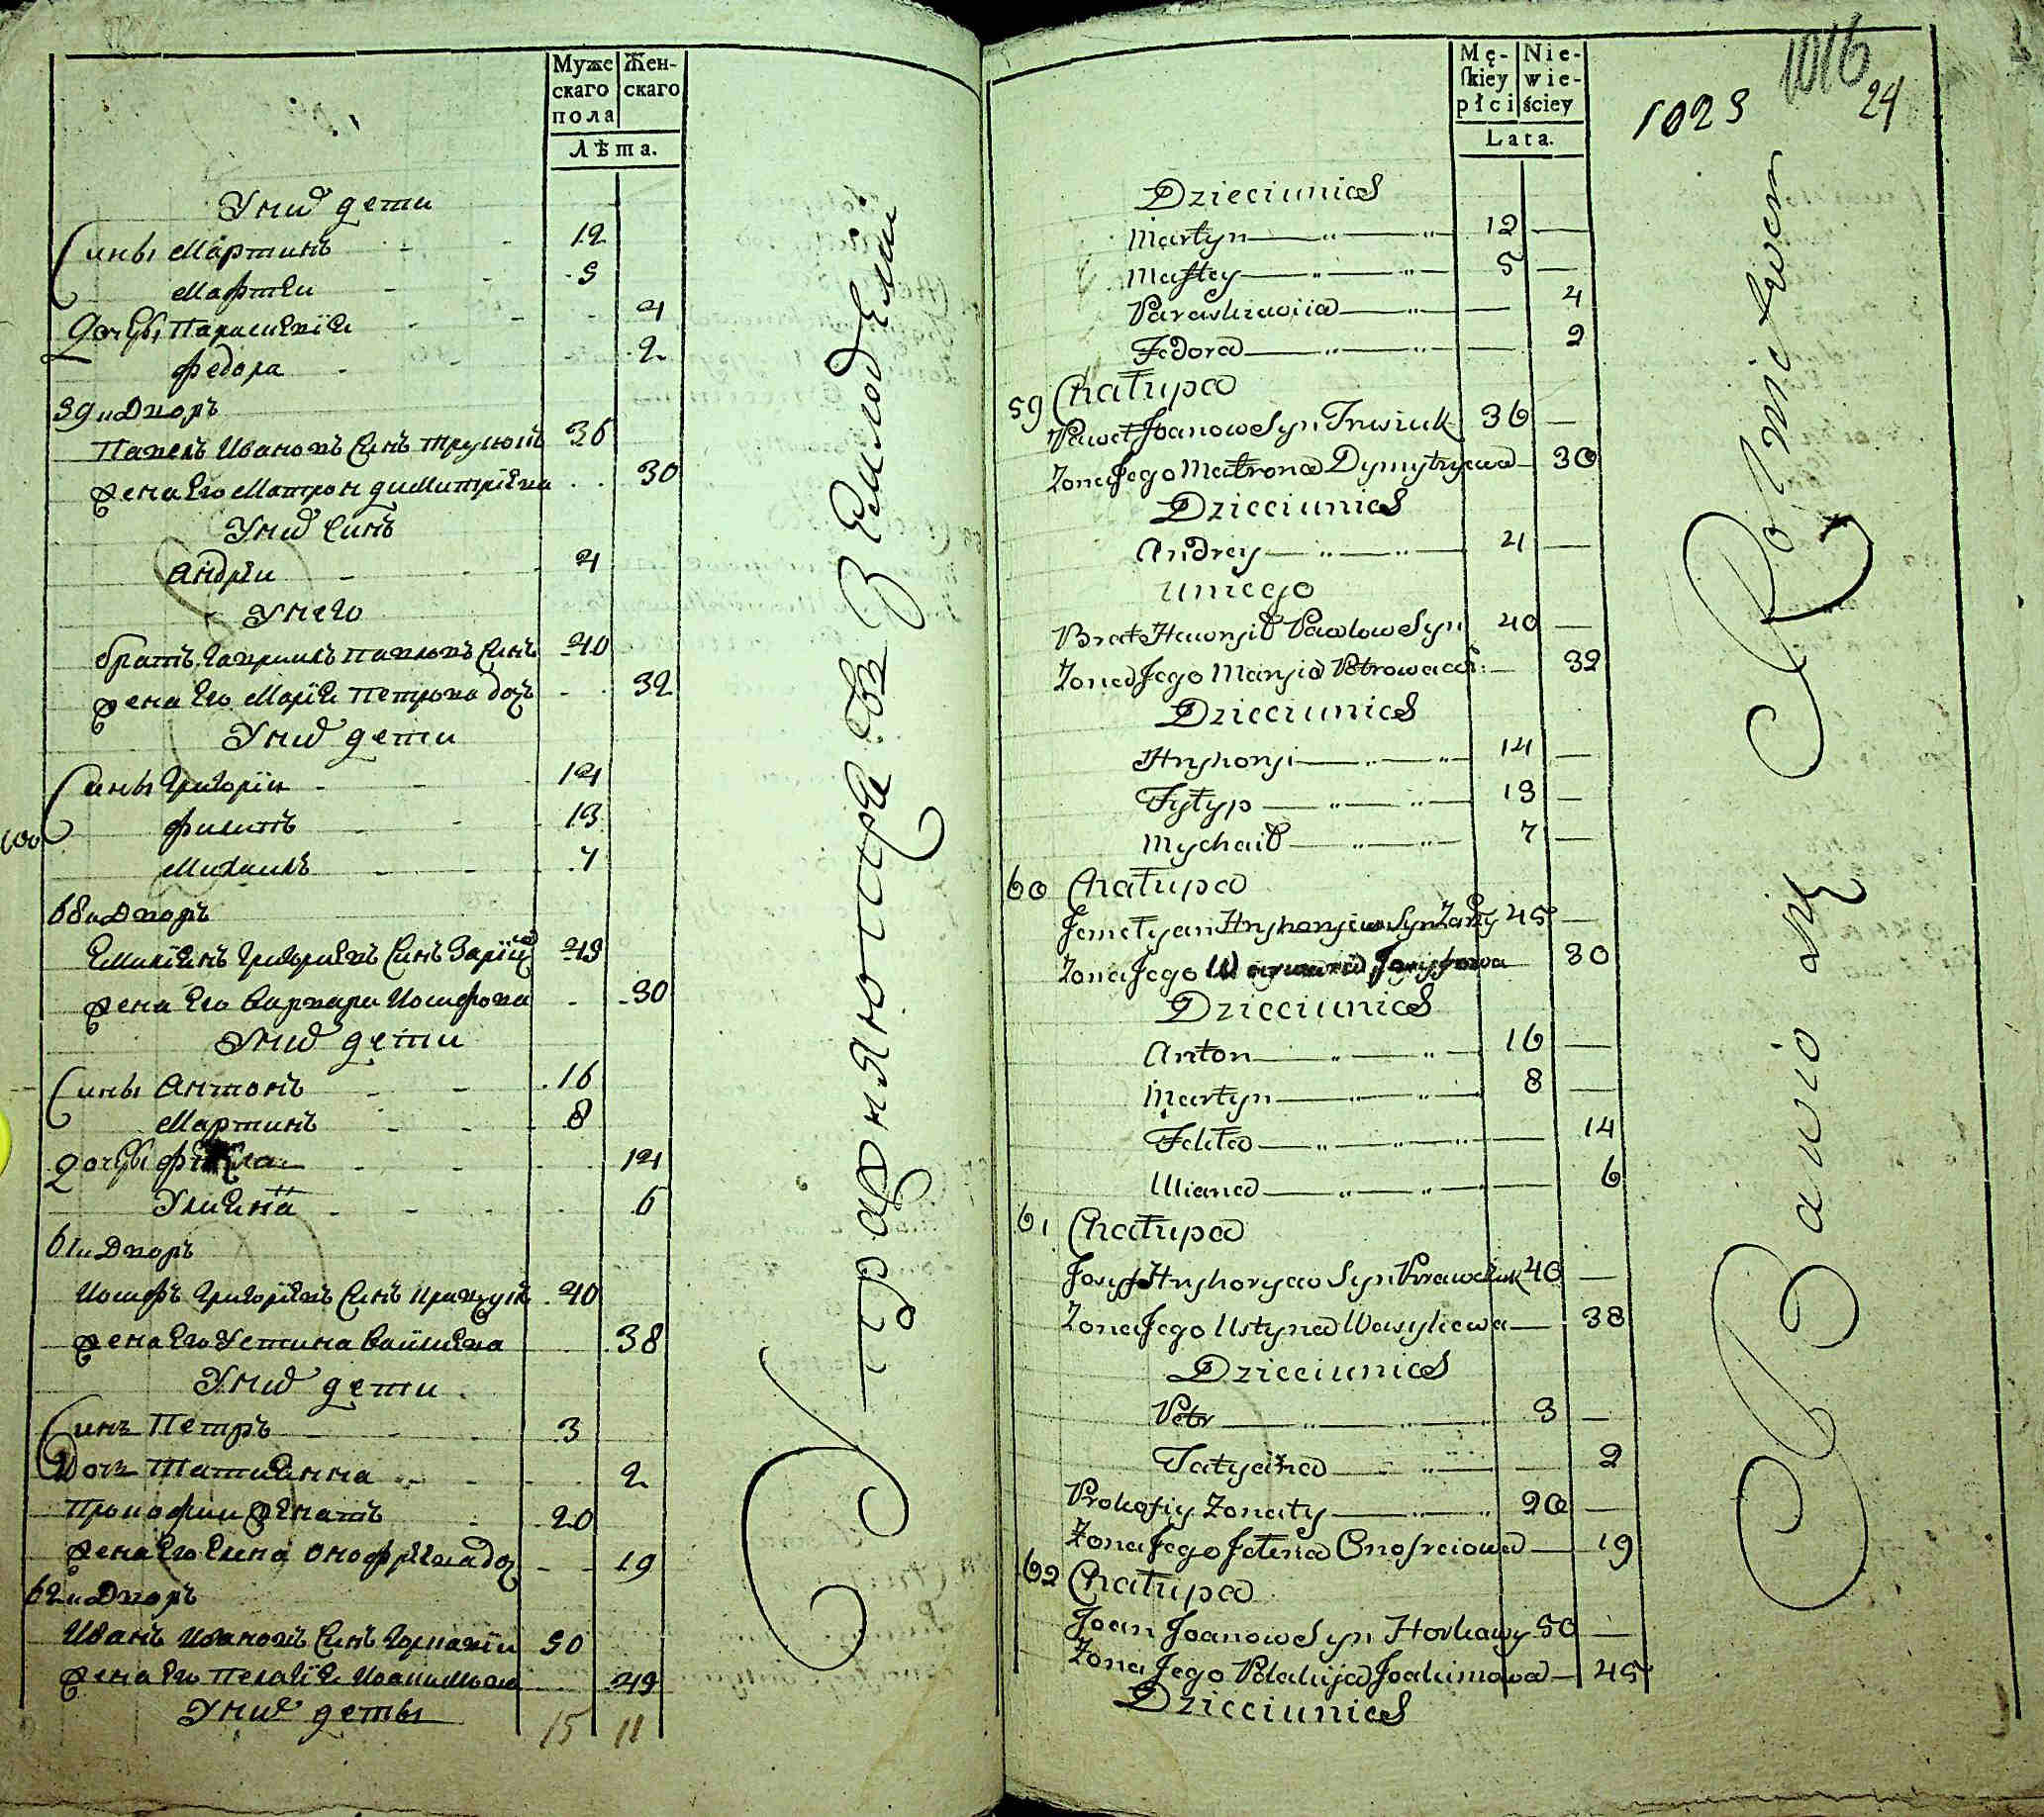 Муже
скаго
пола
Жен-
скаго
Лѣта.
У нид дети
Сины Мартинъ 12
Мафтеи 5
Дочъри Параскевiя 4
Федора 2
59и Дворъ
Павелъ Ивановъ Синъ 36
Жена Его Матрона Димитрiева 30
У нид Синъ
Андреи 4
У него
братъ Гавриилъ Павловъ Синъ 40
Жена Его Марiя Петрова доч 32
У нид дети
Сины Григорiи 14
Филипъ 13
Михаилъ 7
60и Дворъ
Емилiянъ Григориевъ Синъ 45
Жена Его Варвара Иосифова 30
У нид дети
Сины Антонъ 16
Мартинъ 8
Дочъри 14
Улияна 6
61и Дворъ
Иосифъ Григорiевъ Синъ Кравчукъ 40
Жена Его Устина Василиева 38
У нид дети
Синъ Петръ 3
Дочъ Татиянна 2
Прокофии Женатъ 20
Жена Его Елена Онофрiева доч 19
62и Дворъ
Иванъ Ивановъ Синъ 50
Жена Его Пелагiя 45
У нид деты
15 11
Упражняются въ Земледелии
Mę-
ſkiey
płci
Nie-
wie-
ściey
Lata.
1016
1023
24
Dzieciunich
Martyn 12 —
Maftey 5 —
Paraskiewiia — 4
Fedora — 2
59 Chałupa
Paweł Joanow Syn 36 —
Zona Jego Matrona Dymytryewa 30
Dzieciunich
Andrey 4 —
Uniego
Brat Hawryił Pawlow Syn 40 —
Zona Jego Maryia Petrowa — 32
Dzieciunich
Hryhoryi 14 —
Fyłyp 13 —
Mychaił 7 —
60 Chałupa
Jemełyan Hryhoryiew Syn 45 —
Zona Jego Warwara Jozyfowa 30
Dzieciunich
Anton 16 —
Martyn 8 —
Fekła — 14
Uliana — 6
61 Chałupa
Josyf Hryhoryew Syn Krawczuk 40 —
Zona Jego Ustyna Wasylewa — 38
Dzieciunich
Petr 3 —
Tatyanna — 2
Prokofiy Zonaty 20 —
Zona Jego Jełena Onofreiowa — 19
62 Chałupa
Joan Joanow Syn Horkawy 50 —
Zona Jego Pelahija Joakimowa — 45
Dzieciunich
Bawią się Rolnictwem